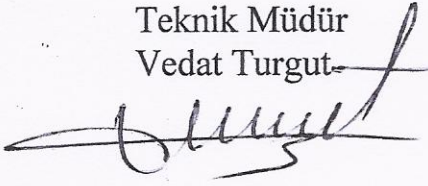 Teknik Müdür
Vedat Turgut